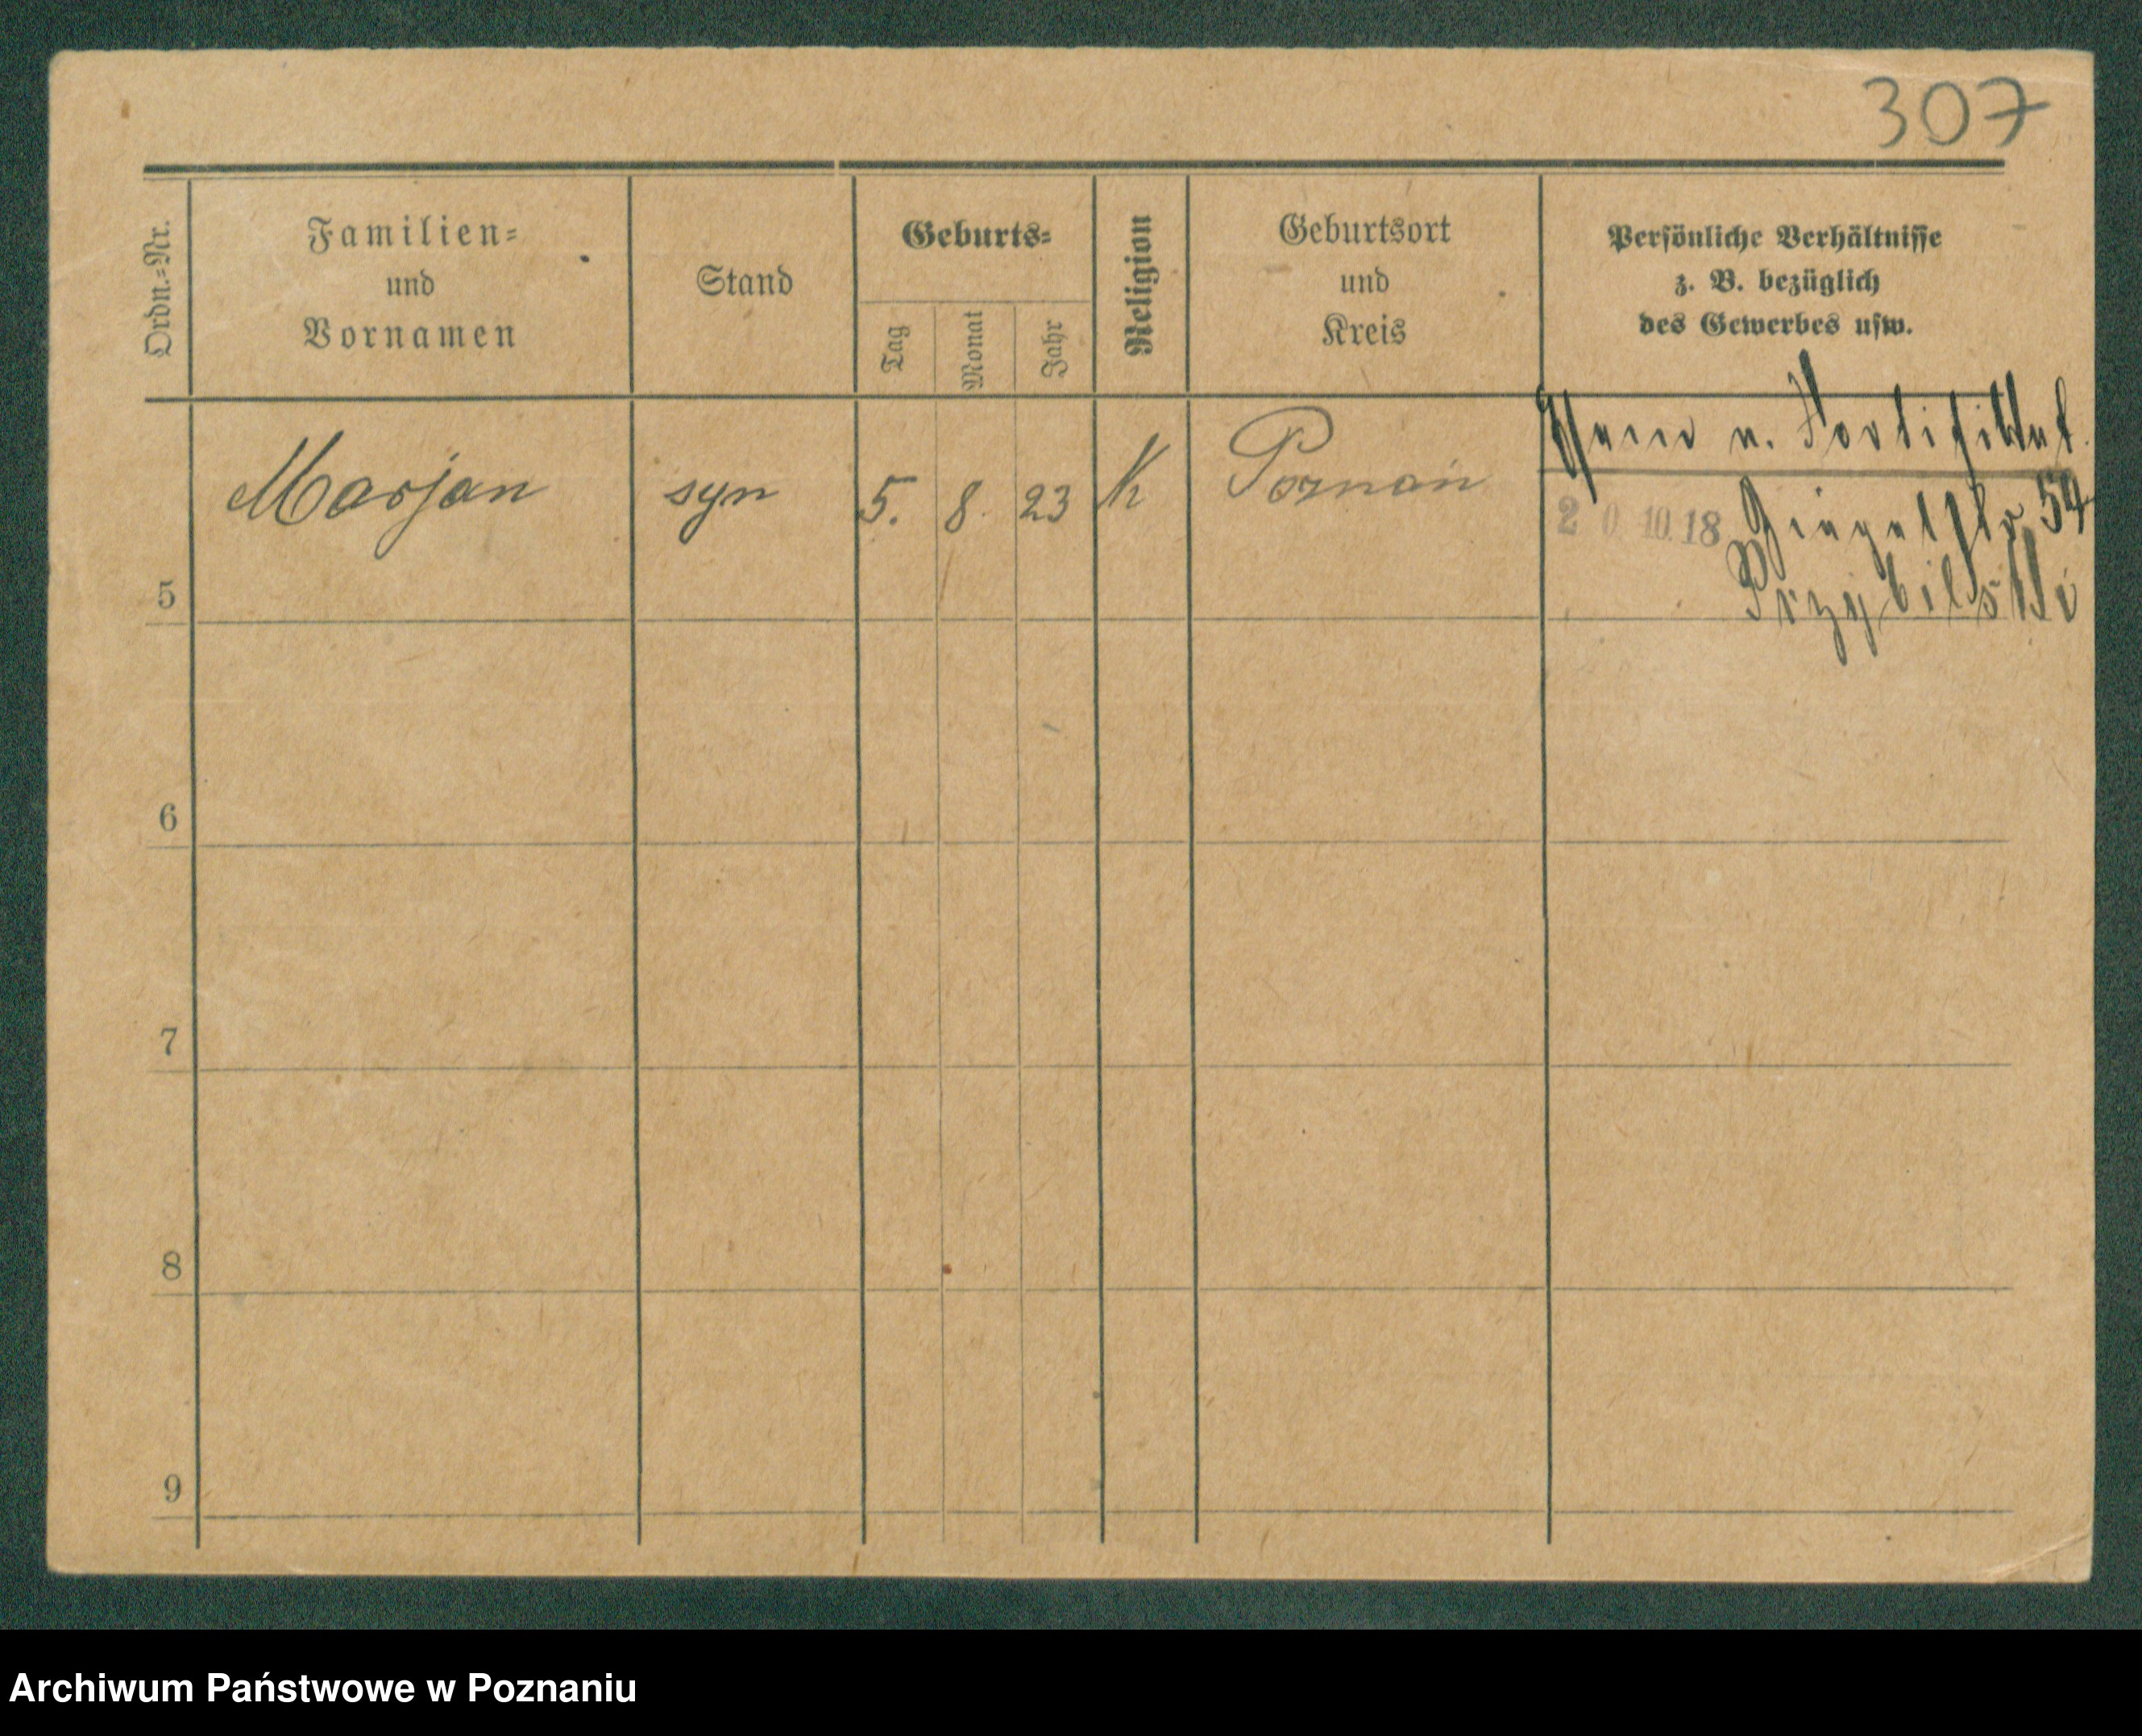 307
Ordn.=Nr.
Familien=
und
Vornamen
Stand
Geburts=
Tag
Monat
Jahr
Religion
Geburtsort
und
Kreis
Persönliche Verhältnisse
z. B. bezüglich
des Gewerbes usw.
Marjan syn 5. 8. 23 K Poznań
u.
2 0. 10. 18 54
Przybilski
5
6
7
8
9
Archiwum Państwowe w Poznaniu